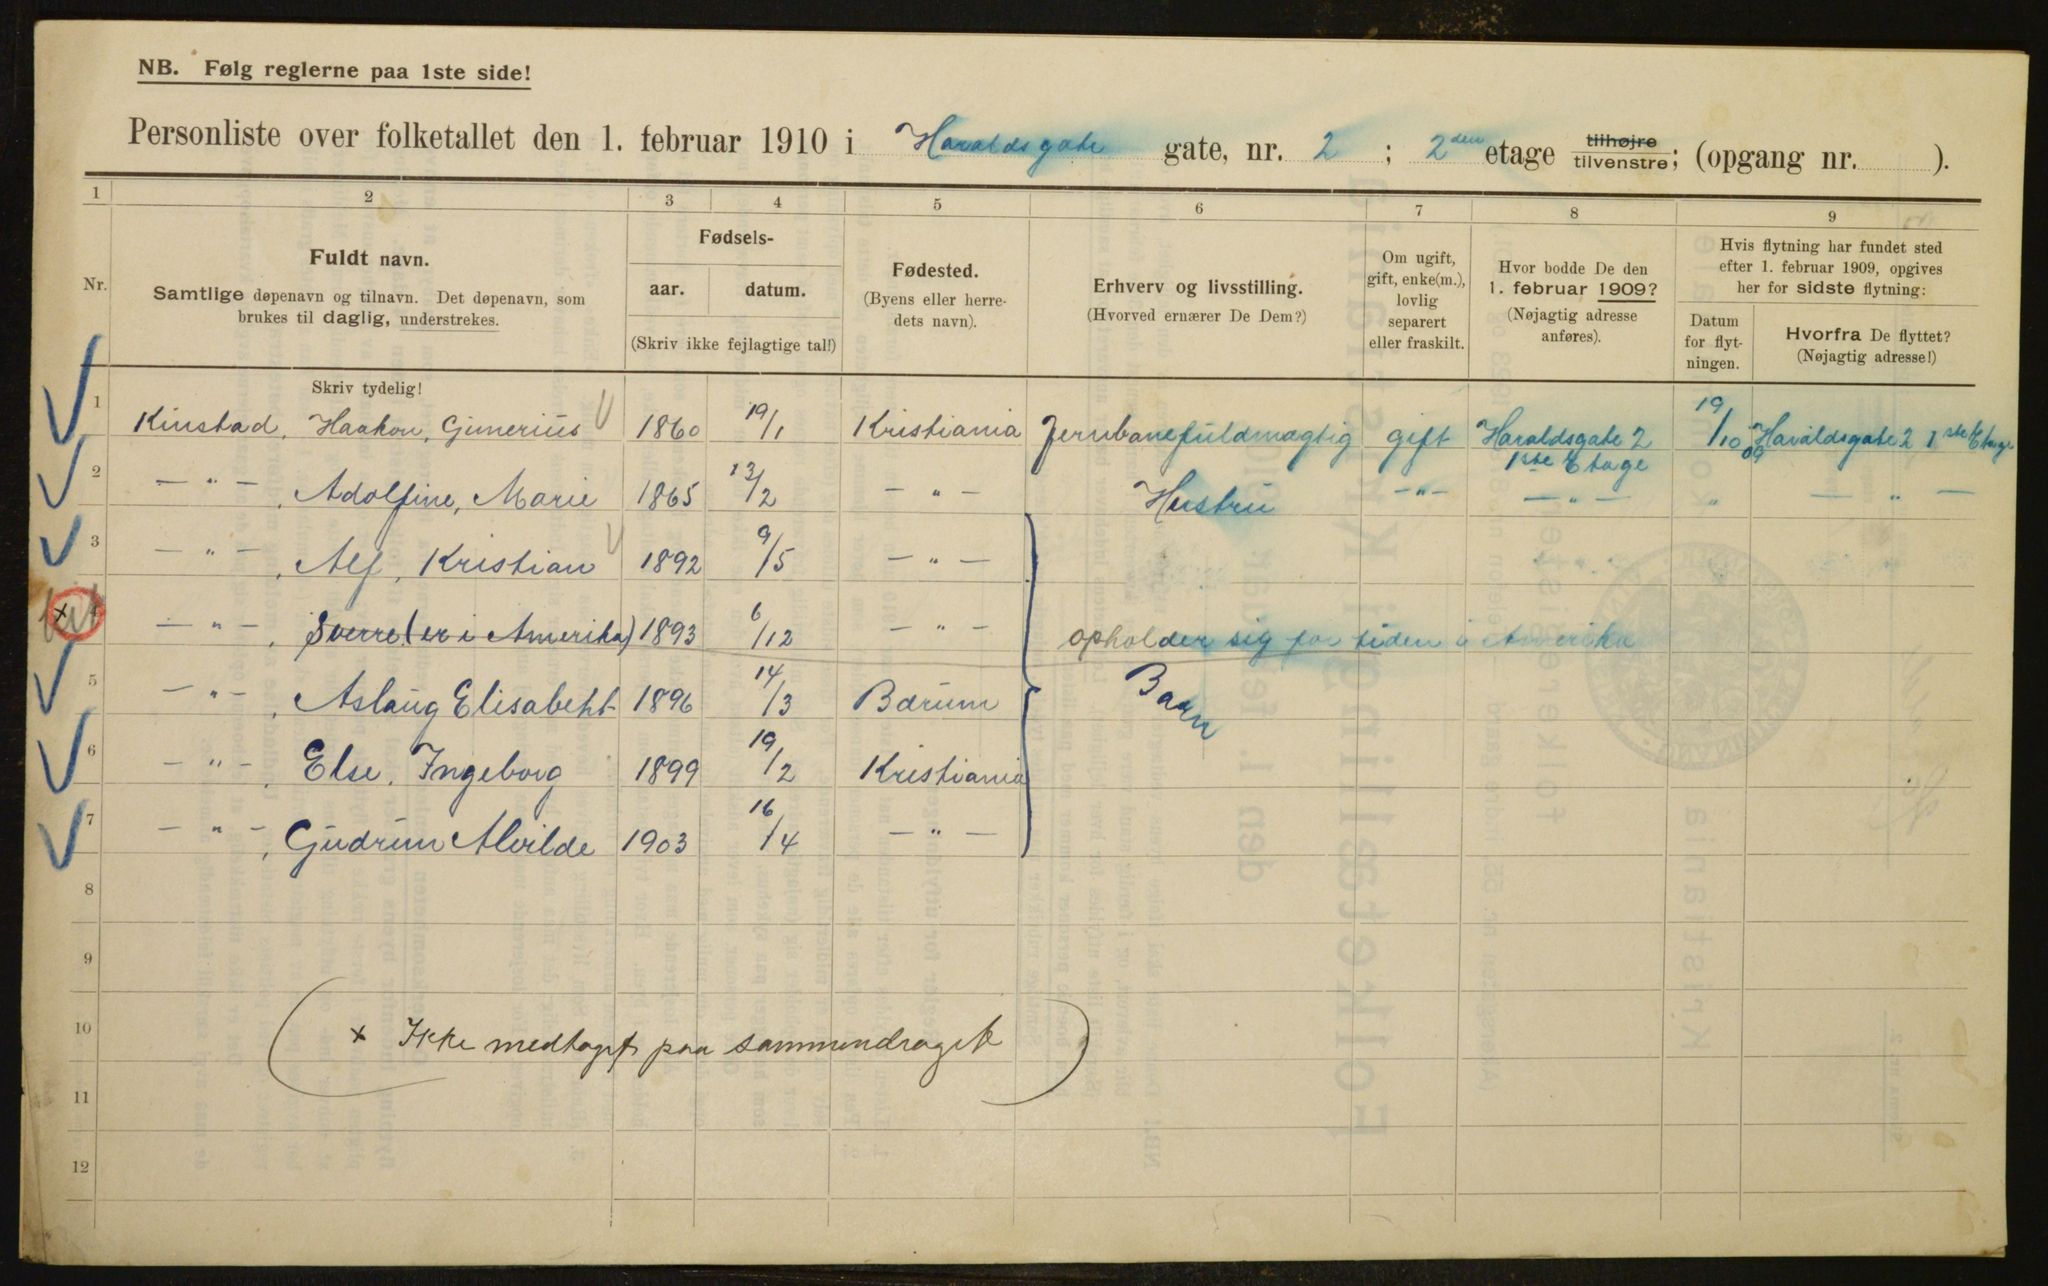 NB. Følg reglerne paa 1ste side!
Personliste over folketallet den 1. februar 1910 i Haraldsgate gate, nr. 2 ; 2den etage tilhøjre tilvenstre; (opgang nr. ).
1 2 3 4 5 6 7 8 9
Nr.
Fuldt navn.
Samtlige døpenavn og tilnavn. Det døpenavn, som
brukes til daglig, understrekes.
Fødsels-
aar. datum.
(Skriv ikke fejlagtige tal!)
Fødested.
(Byens eller herre-
dets navn).
Erhverv og livsstilling.
(Hvorved ernærer De Dem?)
Om ugift,
gift, enke(m.),
lovlig
separert
eller fraskilt.
Hvor bodde De den
1. februar 1909?
(Nøjagtig adresse
anføres).
Hvis flytning har fundet sted
efter 1. februar 1909, opgives
her for sidste flytning:
Datum
for flyt-
ningen.
Hvorfra De flyttet?
(Nøjagtig adresse!)
Skriv tydelig!
1 Kinstad, Haakon, Gunerius 1860 19/1 Kristiania Jernbanefuldmægtig gift Haraldsgate 2 1ste Etage 19/10 09 Haraldsgate 2 1ste Etage
2 — " — , Adolfine, Marie 1865 13/2 — " — Hustru — " — — " — " — " —
3 — " — , Alf, Kristian 1892 9/5 — " —
x 4 — " — , Sverre (er i Amerika) 1893 6/12 — " — opholder sig for tiden i Amerika
5 — " — , Aslaug Elisabeht 1896 14/3 Bærum Barn
6 — " — , Else, Ingeborg 1899 19/2 Kristiania
7 — " — , Gudrun Alvilde 1903 16/4 — " —
8
9
10
(x Ikke medtaget paa sammendraget)
11
12